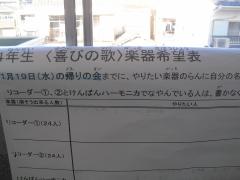 年生 〈喜びの歌〉楽器希望表
1月19日(水)の帰りの会までに、やりたい楽器のらんに自分の名
リコーダー①、②とけんばんハーモニカでなやんでいる人は、書かなく
楽器(演そう出来る人数)
やりたい人
リコーダー①(24人)
リコーダー②(24人)